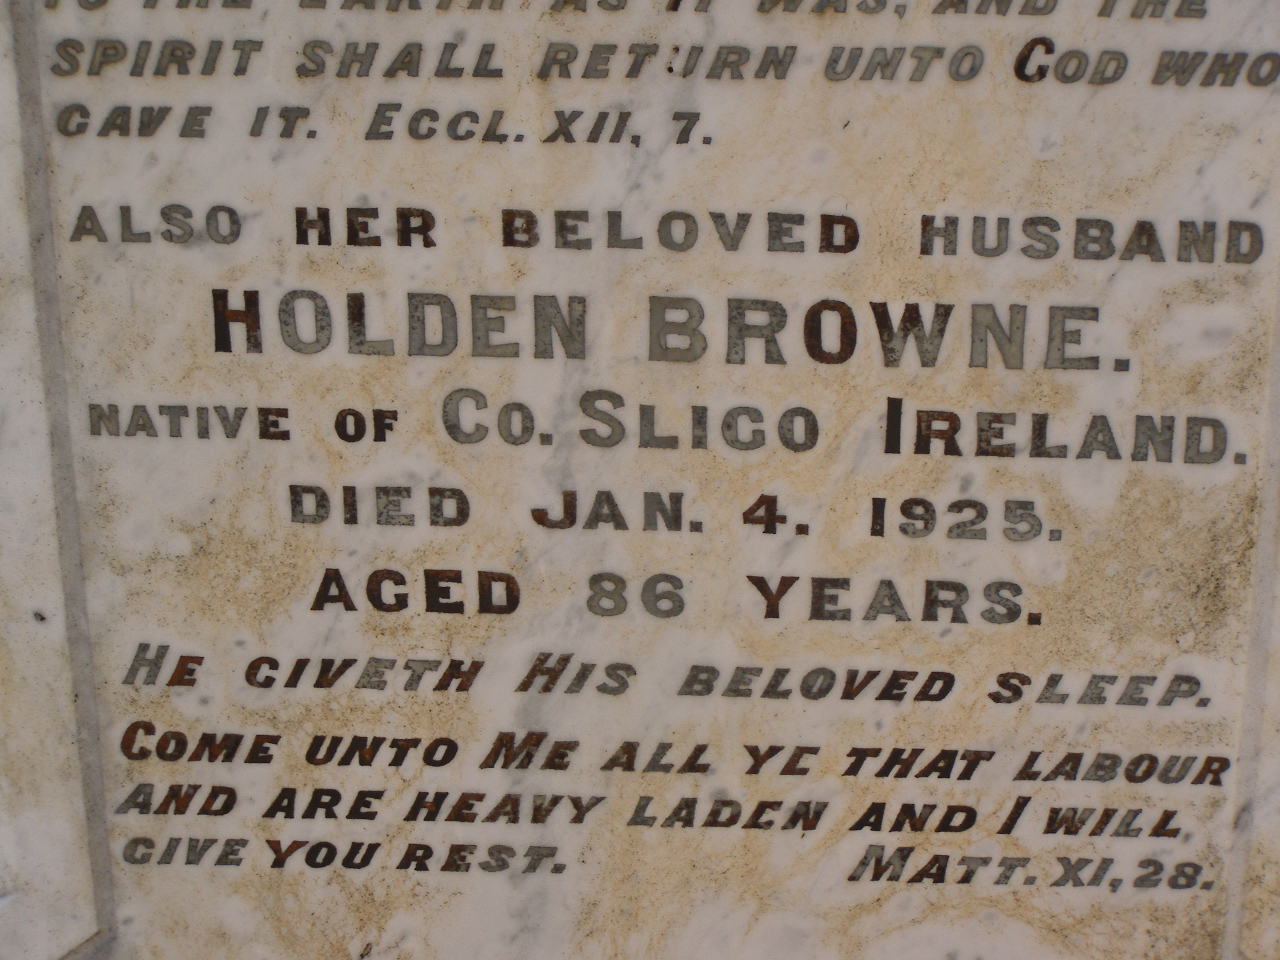 TO THE EARTH AS IT WAS, AND THE
SPIRIT SHALL RETURN UNTO GOD WHO
GAVE IT. ECCL. XII, 7.
ALSO HER BELOVED HUSBAND
HOLDEN BROWNE.
NATIVE OF CO. SLIGO IRELAND.
DIED JAN. 4. 1925.
AGED 86 YEARS.
HE GIVETH HIS BELOVED SLEEP.
COME UNTO ME ALL YE THAT LABOUR
AND ARE HEAVY LADEN AND I WILL
GIVE YOU REST. MATT. XI, 28.